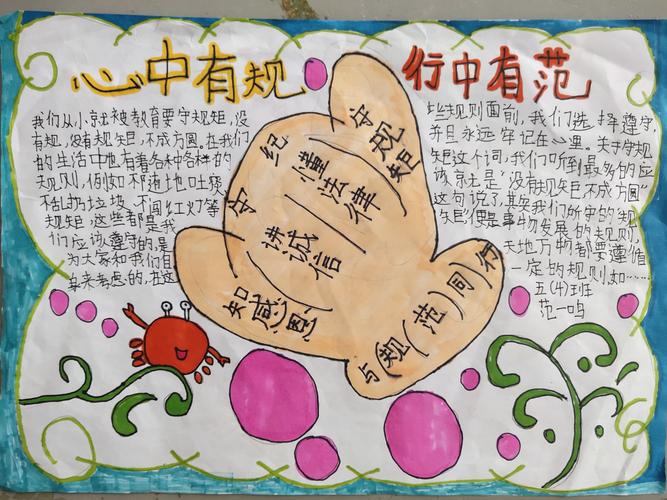 心中有规
行中有范
我们从小就被教育要守规矩,没
有规,没有规矩,不成方圆。在我们
的生活中也有着各种各样的
规则,例如不随地吐痰
不乱扔垃圾、不闯红灯等
规矩,这些都是我
们应该遵守的,是
为大家和我们自
身来考虑的,在这
守规矩
守纪
懂法律
讲诚信
知感恩
与规(范)同行
些规则面前,我们选择遵守,
并且永远牢记在心里。关于守规
矩这个词,我们听到最多的应
该就是“没有规矩不成方圆”
这句说了,其实我们所守的“规
矩”便是事物发展的规则,
天地万物都要遵循
一定的规则,如……
五(4)班
范一鸣